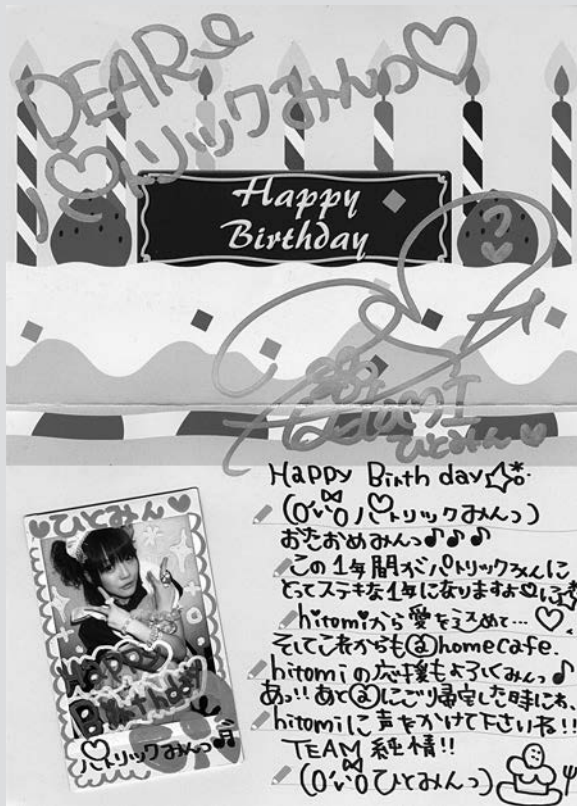 DEAR
パトリックみんっ♡
Happy
Birthday
HITOMI
ひとみん♡
Happy Birth day☆
(O'v'O パトリックみんっ)
おたおめみんっ♪♪♪
この1年間がパトリックみんに
とってステキな1年になりますよぅに☆
hitomiから愛をこめて…♡
そしてこれからも@homecafe.
hitomiの応援もよろしくみんっ♪
あっ!!あと@にご帰宅した時にわ、
hitomiに声をかけて下さいね!!
TEAM 純情!!
(O'v'O ひとみんっ)
♥ひとみん♥
Happy
Birthday
パトリックみんっ♪